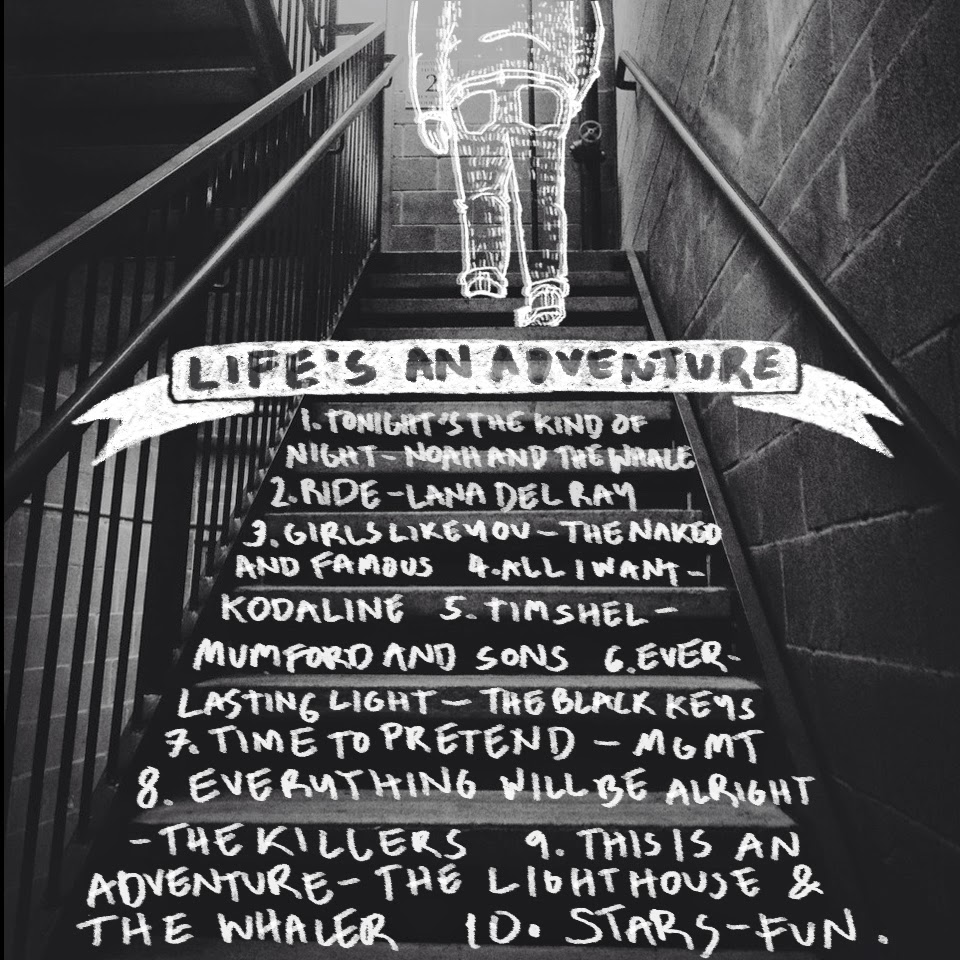 2
LIFE'S AN ADVENTURE
1. TONIGHT'S THE KIND OF
NIGHT - NOAH AND THE WHALE
2. RIDE - LANA DEL RAY
3. GIRLS LIKE YOU - THE NAKED
AND FAMOUS 4. ALL I WANT -
KODALINE 5. TIMSHEL -
MUMFORD AND SONS 6. EVER-
LASTING LIGHT - THE BLACK KEYS
7. TIME TO PRETEND - MGMT
8. EVERYTHING WILL BE ALRIGHT
- THE KILLERS 9. THIS IS AN
ADVENTURE - THE LIGHTHOUSE &
THE WHALER 10. STARS - FUN.